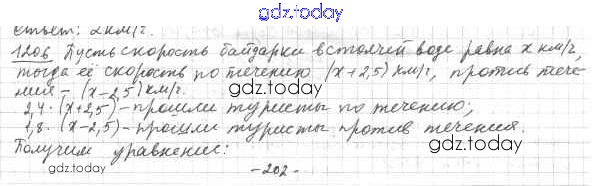 gdz.today
Ответ: 2 км/г.
1206 Пусть скорость байдарки в стоячей воде равна x км/г,
тогда её скорость по течению (x+2,5) км/г, против тече-
ния – (x–2,5) км/г.
gdz.today
2,4·(x+2,5) – прошли туристы по течению;
1,8·(x–2,5) – прошли туристы против течения.
Получим уравнение:
gdz.today
-202-
gdz.today